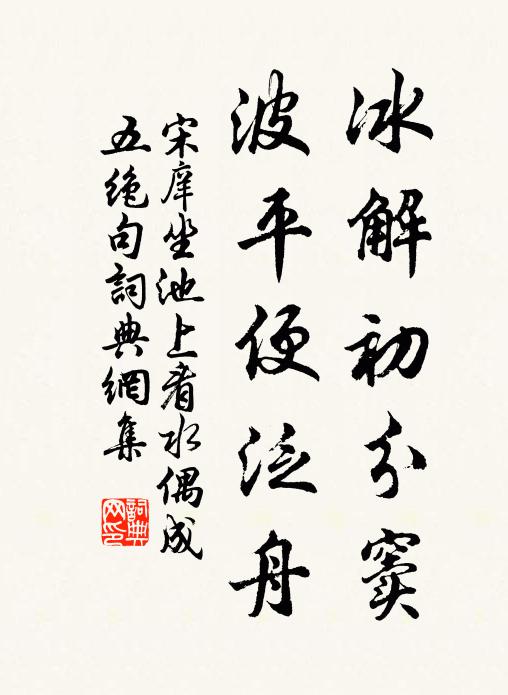 冰解初分竇
波平便泛舟
宋庠坐池上看水偶成
五絶句詞典網集
詞典
网印